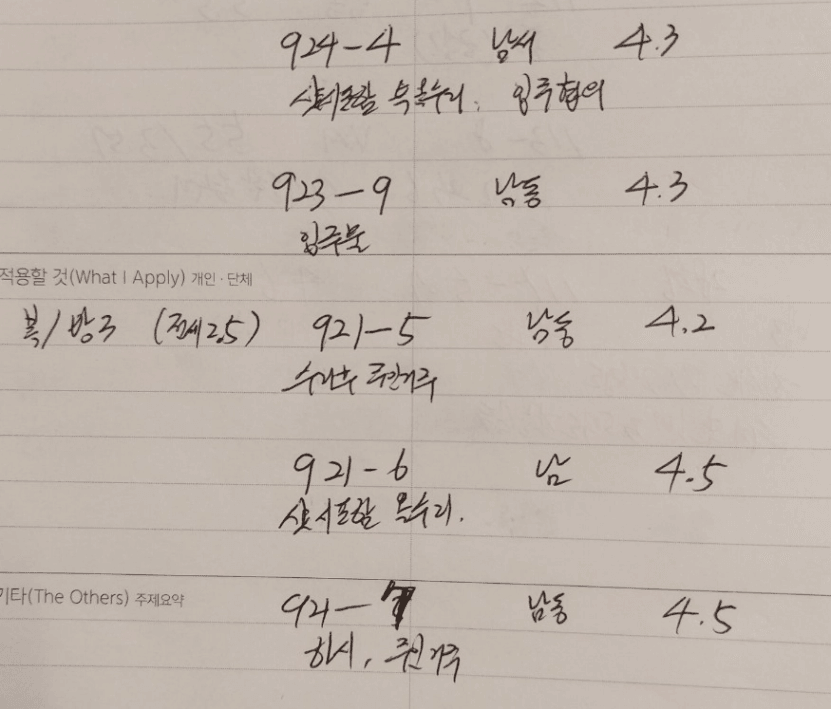 924-4 남서 4.3
샷시포함 올수리. 입주협의
923-9 남동 4.3
입주물
적용할 것(What I Apply) 개인·단체
복/방3 (전세2.5) 921-5 남동 4.2
수리수 주인거주
921-6 남 4.5
샷시포함 올수리.
기타(The Others) 주제요약
921-7 남동 4.5
하시, 주인거주